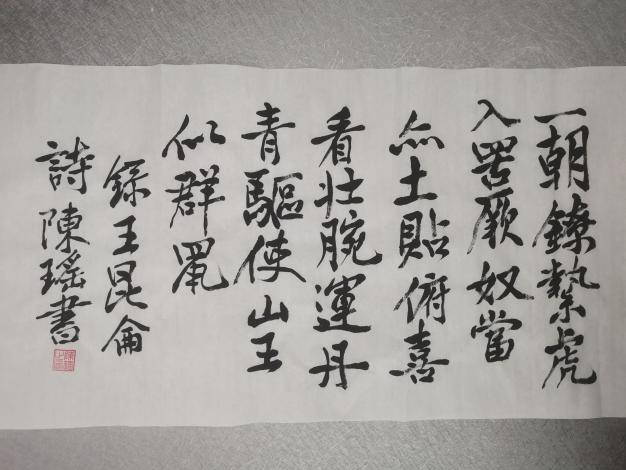 一朝鐐縶虎
入罟厥奴當
土貼俯喜
看壯腕運丹
青驅使山王
似群鼠
錄王昆侖
詩 陳瑤書